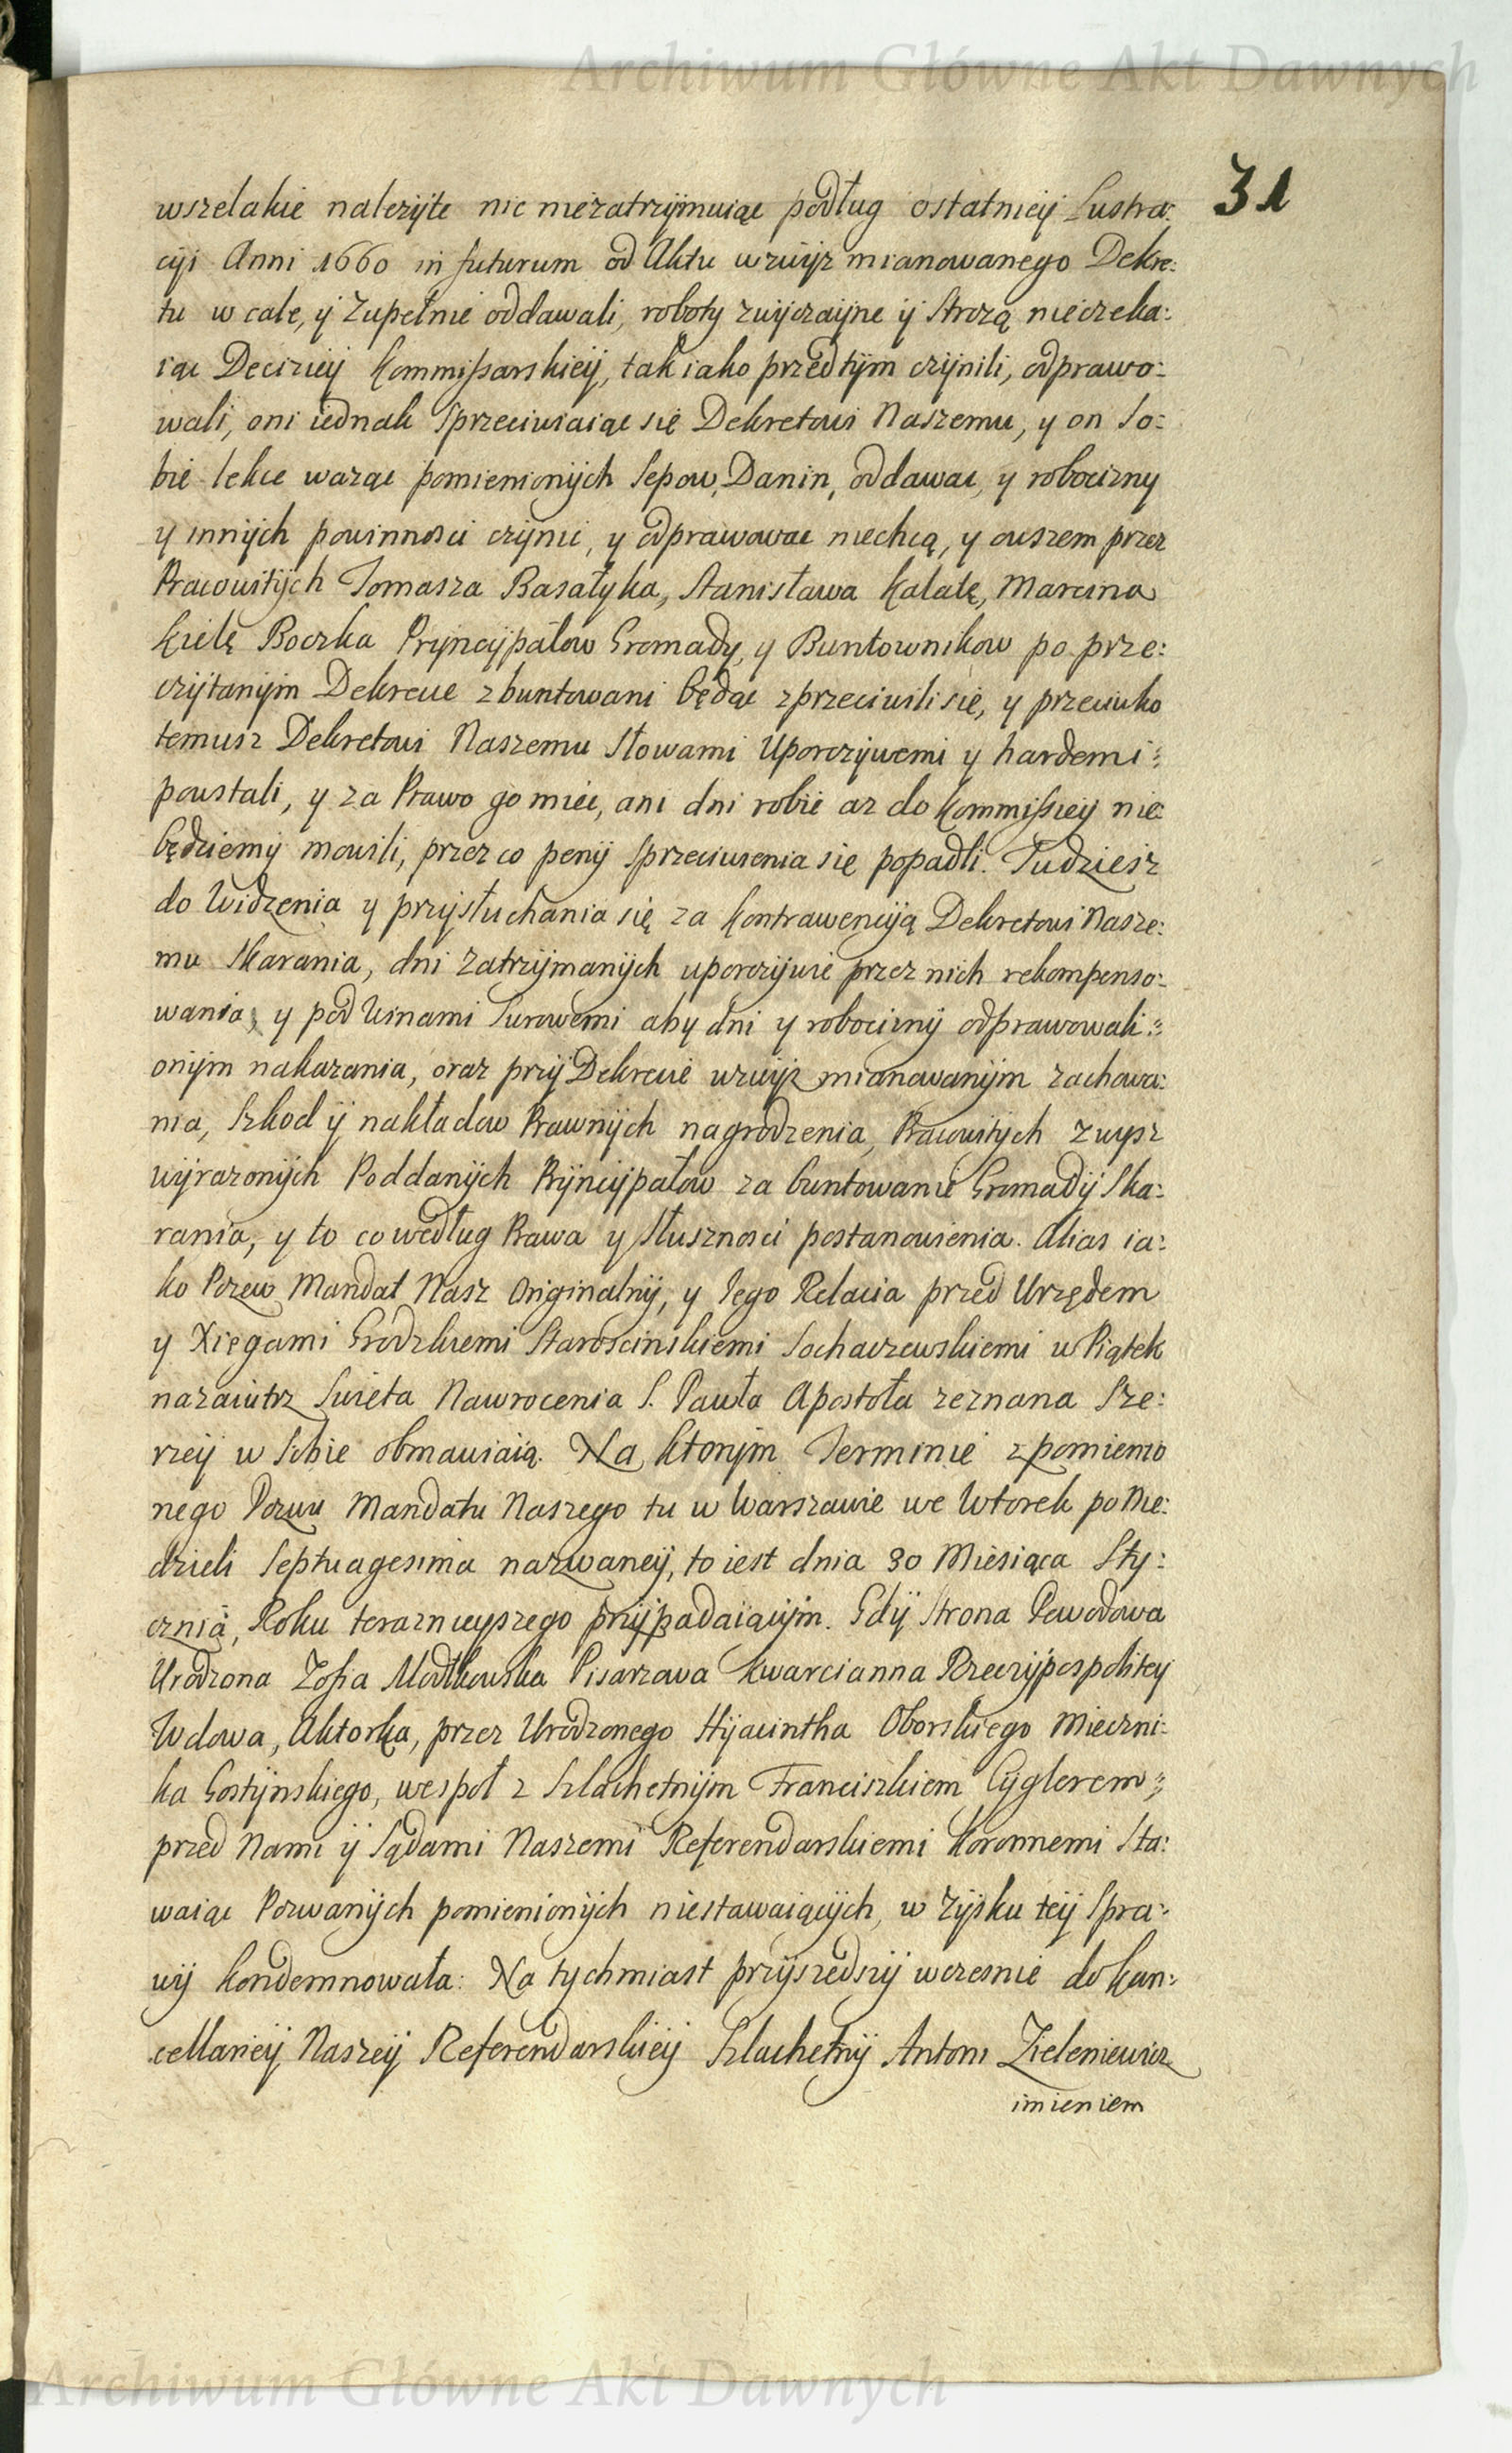 Archiwum Główne Akt Dawnych
31
wszelakie nalezÿte nic niezatrzÿmuiąc podług ostatnieÿ Lustra:
cÿi Anni 1660 in futurum od Aktu wzwÿz mianowanego Dekre:
tu w cale, ÿ Zupełnie oddawali, roboty zwÿczaÿne ÿ Strozą nieczeka:
iąc Decizieÿ Kommissarskieÿ, tak iako przedtÿm czÿnili, odprawo:
wali, oni iednak Sprzeciwiaiąc się Dekretowi Naszemu, y on So:
bie lekce waząc pomienionÿch Sepow, Danin, oddawac, y robocizny
y innÿch powinnosci czÿnic, y odprawowac niechcą, y owszem przez
Pracowitÿch Tomasza Basałyka, Stanisława Kalatę, Marcina
Kielę Boczka Prÿncÿpałow Gromady, y Buntownikow po prze:
czÿtanÿm Dekrecie zbuntowani będąc zprzeciwili się, y przeciwko
temusz Dekretowi Naszemu Słowami Uporczÿwemi y hardemi
powstali, y za Prawo go miec, ani dni robic az do Kommissieÿ nie
będziemÿ mowili, przez co penÿ Sprzeciwienia się popadli. Tudziesz
do Widzenia y przÿsłuchania się za Kontrawencÿą Dekretowi Nasze:
mu Skarania, dni Zatrzÿmanÿch uporczÿwie przez nich rekompenso:
wania, y pod Winami Surowemi aby dni y robociznÿ odprawowali
onÿm nakazania, oraz przÿ Dekrecie wzwÿz mianowanÿm zachowa:
nia, Szkod ÿ nakładow Prawnÿch nagrodzenia, Pracowitÿch zwysz
wÿrazonÿch Poddanÿch Prÿncÿpałow za buntowanie Gromadÿ Ska:
rania, y to co według Prawa y Słusznosci postanowienia. Alias ia:
ko Pozew Mandat Nasz Originalnÿ, y Jego Relacia przed Urzędem
y Xięgami Grodzkiemi Staroscinskiemi Sochaczewskiemi w Piątek
nazaiutrz Swięta Nawrocenia S. Pawła Apostoła zeznana Sze:
rzeÿ w Sobie obmawiaią. Na ktorÿm Terminie z pomienio
nego Pozwu Mandatu Naszego tu w Warszawie we Wtorek po Nie:
dzieli Septuagesima nazwaneÿ, to iest dnia 30 Miesiąca Sty:
cznia, Roku teraznieyszego przÿpadaiącÿm. Gdÿ Strona Powodowa
Urodzona Zofia Modlkowska Pisarzowa Kwarcianna Rzeczÿpospolitey
Wdowa, Aktorka, przez Urodzonego Hÿacintha Oborskiego Mieczni:
ka Gostÿnskiego, wespoł z Szlachetnÿm Franciszkiem Cÿglerem
przed Nami ÿ Sądami Naszemi Referendarskiemi Koronnemi Sta:
waiąc Pozwanÿch pomienionÿch niestawaiącÿch, w Zÿsku teÿ Spra:
wÿ Kondemnowała: Na tychmiast przÿszedszÿ wczesnie do Kan:
cellarieÿ Naszeÿ Referendarskieÿ Szlachetnÿ Antoni Zieleniewicz
imieniem
Archiwum Główne Akt Dawnych